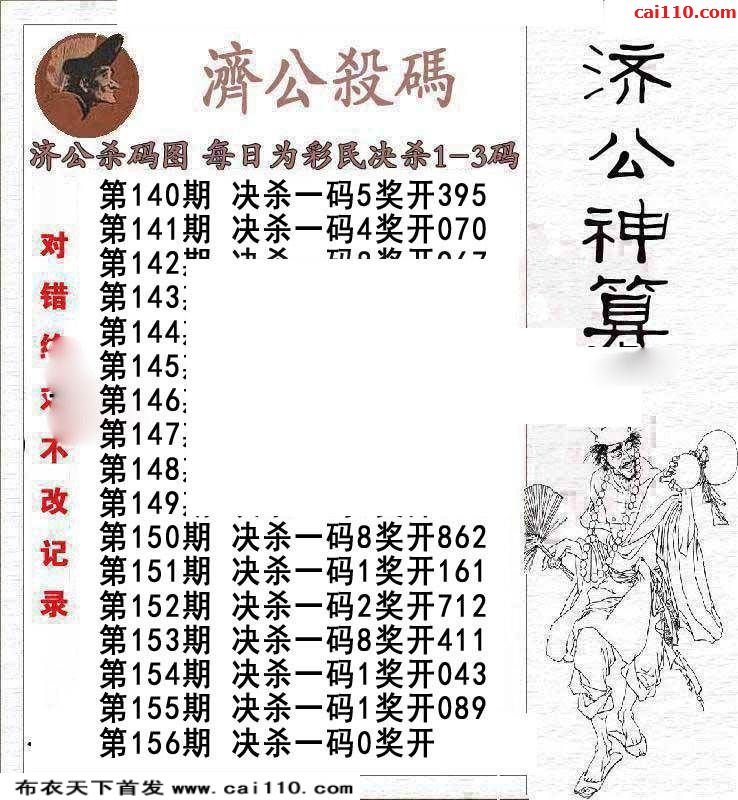 cai110.com
濟公殺碼
济公杀码图 每日为彩民决杀1-3码
第140期 决杀一码5奖开395
第141期 决杀一码4奖开070
第142期
第143
第144
第145
第146
第147
第148
第149
第150期 决杀一码8奖开862
第151期 决杀一码1奖开161
第152期 决杀一码2奖开712
第153期 决杀一码8奖开411
第154期 决杀一码1奖开043
第155期 决杀一码1奖开089
第156期 决杀一码0奖开
对错
不改记录
济公神算
布衣天下首发 www.cai110.com